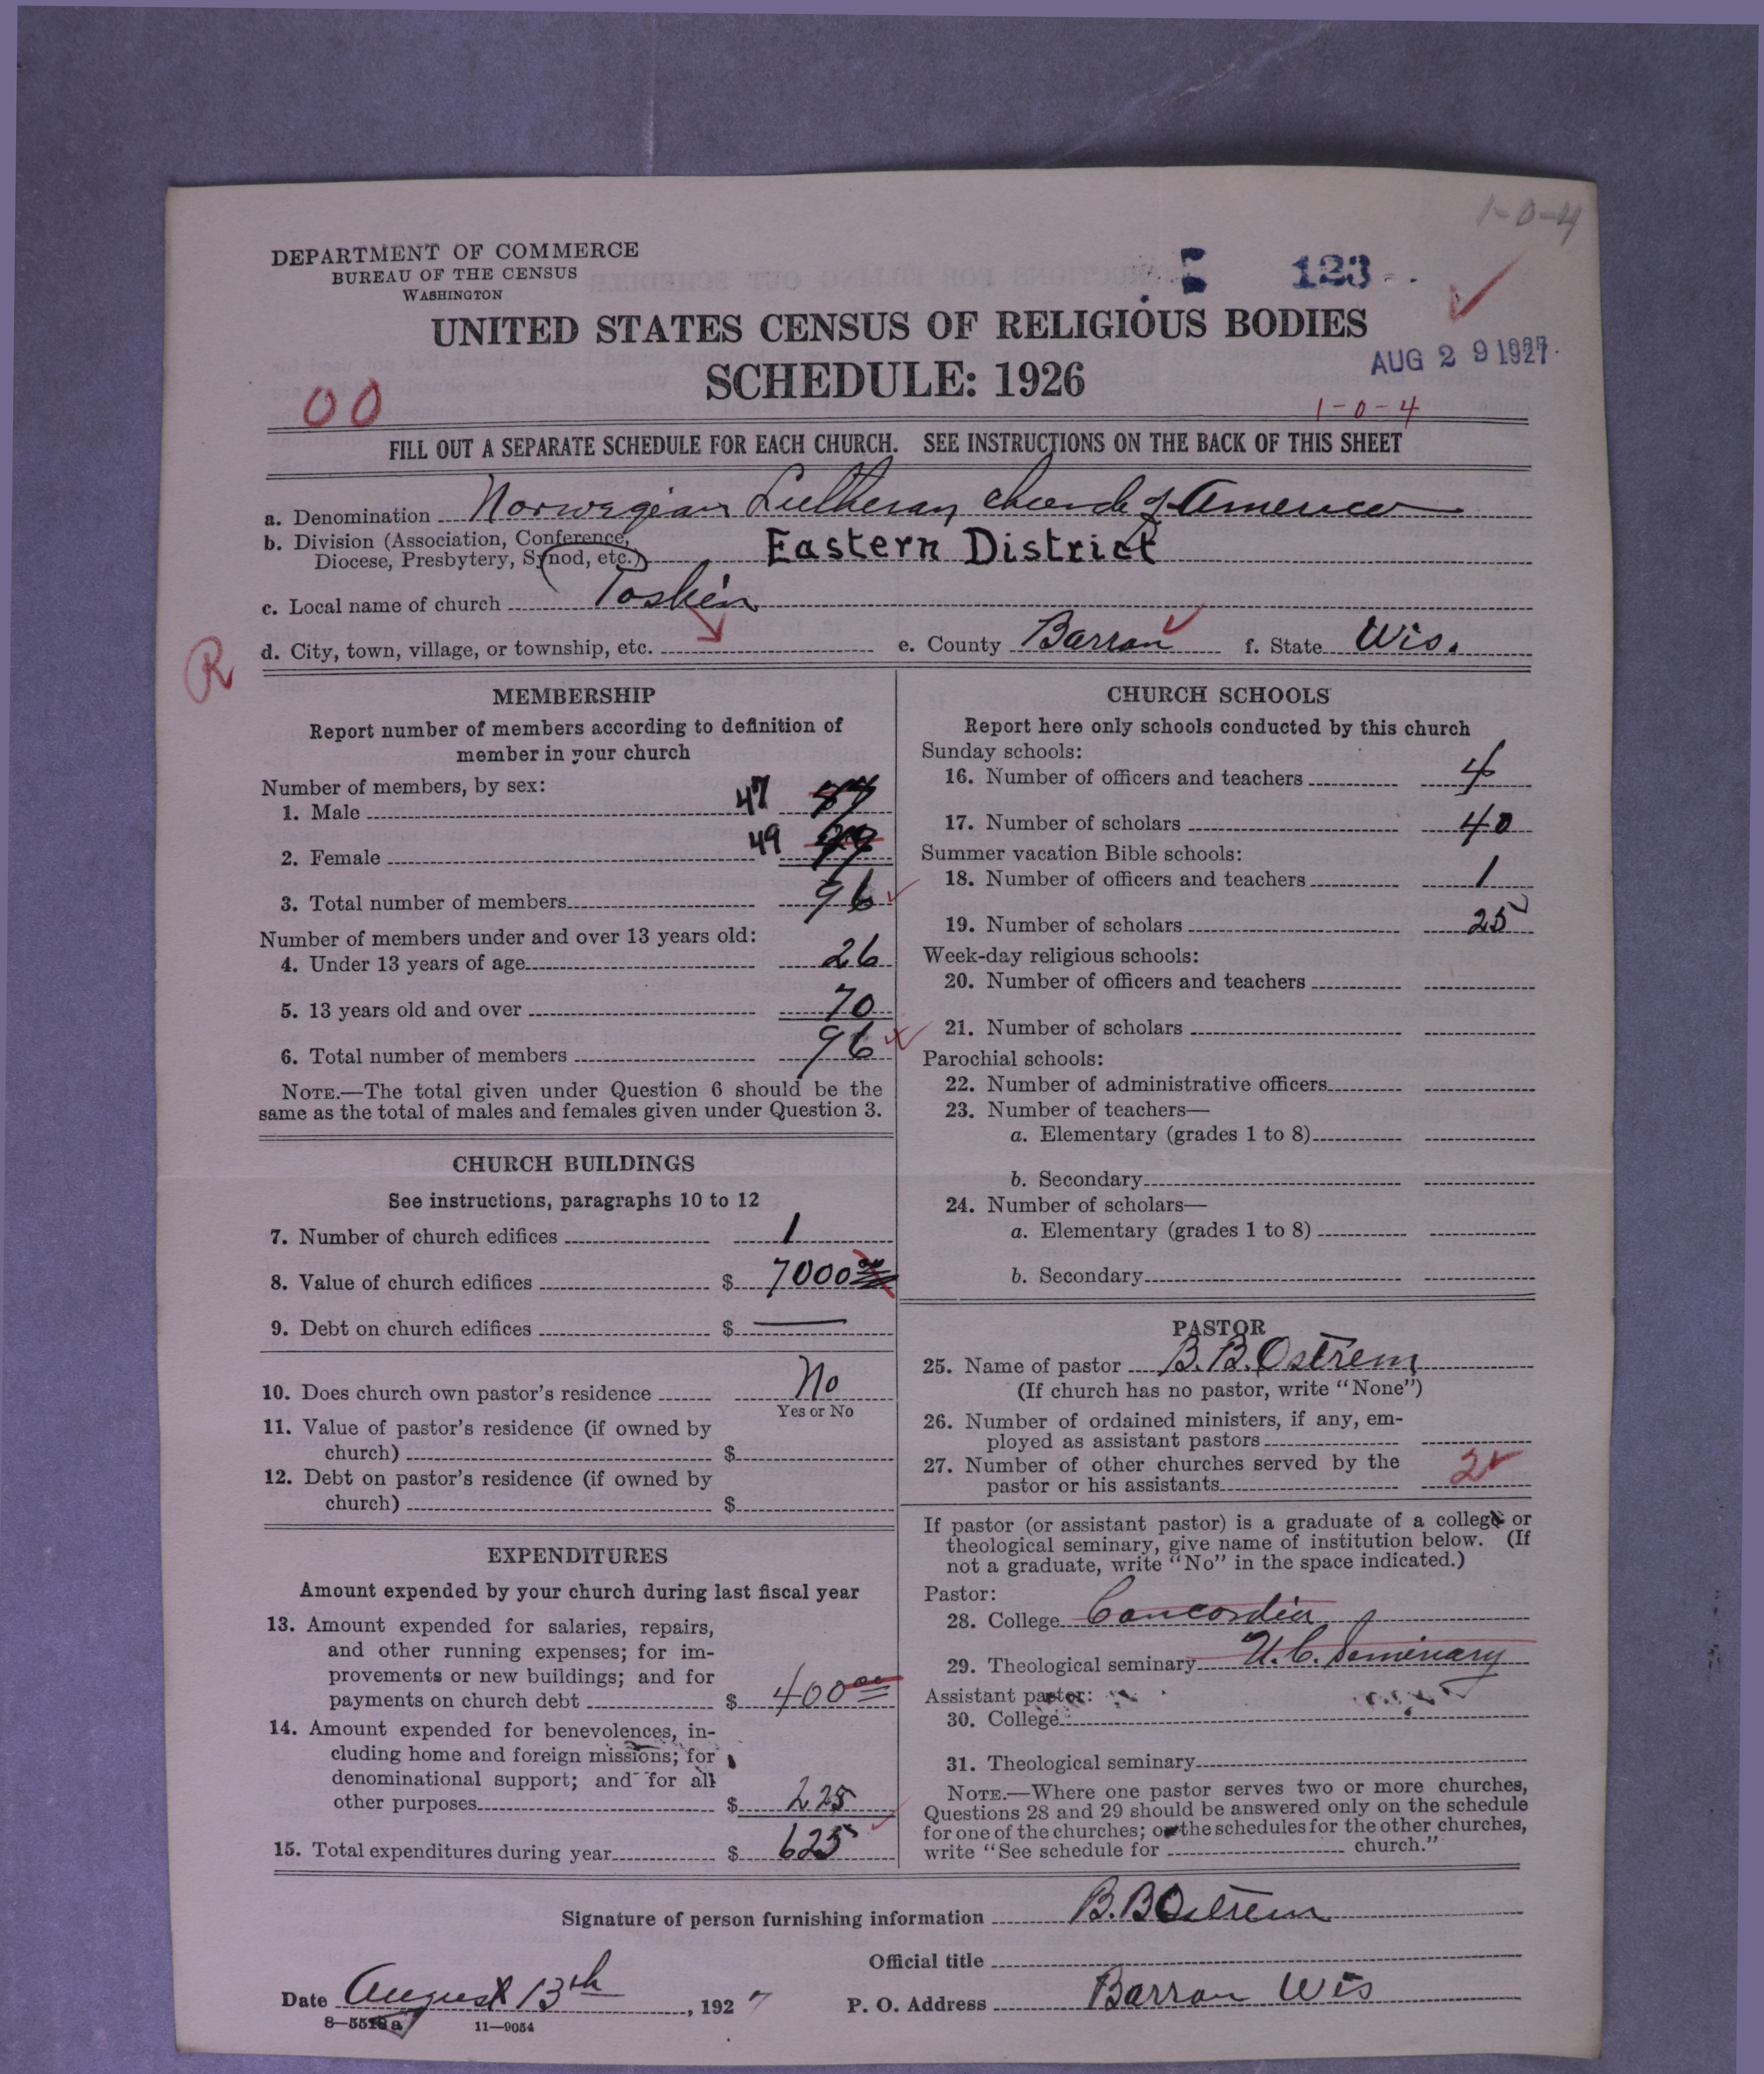 1-0-4
DEPARTMENT OF COMMERCE
BUREAU OF THE CENSUS
WASHINGTON
123
UNITED STATES CENSUS OF RELIGIOUS BODIES
AUG 29 1927
SCHEDULE: 1926
00
1-0-4
FILL OUT A SEPARATE SCHEDULE FOR EACH CHURCH. SEE INSTRUCTIONS ON THE BACK OF THIS SHEET
a. Denomination Norwegian Lutheran church of America
b. Division (Association, Conference,
Diocese, Presbytery, Synod, etc.) Eastern District
c. Local name of church Toskin
R
d. City, town, village, or township, etc. e. County Barron f. State Wis.
MEMBERSHIP
Report number of members according to definition of
member in your church
Number of members, by sex:
1. Male 47
2. Female 49
3. Total number of members 96
Number of members under and over 13 years old:
4. Under 13 years of age 26
5. 13 years old and over 70
6. Total number of members 96
NOTE.—The total given under Question 6 should be the
same as the total of males and females given under Question 3.
CHURCH BUILDINGS
See instructions, paragraphs 10 to 12
7. Number of church edifices 1
8. Value of church edifices $ 7000
9. Debt on church edifices $ —
10. Does church own pastor's residence No
Yes or No
11. Value of pastor's residence (if owned by
church) $
12. Debt on pastor's residence (if owned by
church) $
EXPENDITURES
Amount expended by your church during last fiscal year
13. Amount expended for salaries, repairs,
and other running expenses; for im-
provements or new buildings; and for
payments on church debt $ 400 00
14. Amount expended for benevolences, in-
cluding home and foreign missions; for
denominational support; and for all
other purposes $ 225
15. Total expenditures during year $ 625
CHURCH SCHOOLS
Report here only schools conducted by this church
Sunday schools:
16. Number of officers and teachers 4
17. Number of scholars 40
Summer vacation Bible schools:
18. Number of officers and teachers 1
19. Number of scholars 25
Week-day religious schools:
20. Number of officers and teachers
21. Number of scholars
Parochial schools:
22. Number of administrative officers
23. Number of teachers—
a. Elementary (grades 1 to 8)
b. Secondary
24. Number of scholars—
a. Elementary (grades 1 to 8)
b. Secondary
PASTOR
25. Name of pastor B. B. Ostrem
(If church has no pastor, write "None")
26. Number of ordained ministers, if any, em-
ployed as assistant pastors
27. Number of other churches served by the
pastor or his assistants 2
If pastor (or assistant pastor) is a graduate of a college or
theological seminary, give name of institution below. (If
not a graduate, write "No" in the space indicated.)
Pastor:
28. College Concordia
29. Theological seminary U. C. Seminary
Assistant pastor:
30. College
31. Theological seminary
NOTE.—Where one pastor serves two or more churches,
Questions 28 and 29 should be answered only on the schedule
for one of the churches; on the schedules for the other churches,
write "See schedule for church."
Signature of person furnishing information B. B Ostrem
Official title
Date August 13th, 1927 P. O. Address Barron Wis
11—9054